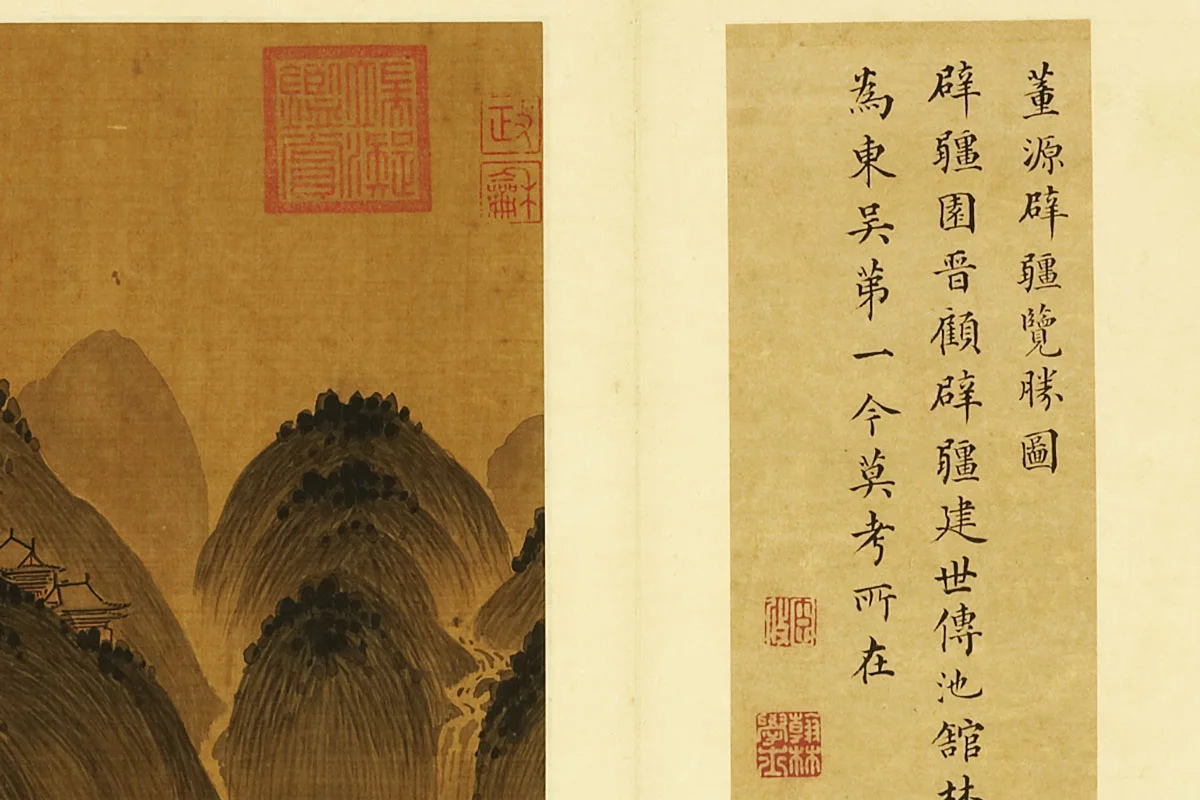 董源辟疆覽勝圖
辟疆園晋顧辟疆建世傳池館林
為東吴苐一今莫考所在
翰林學士
政龢